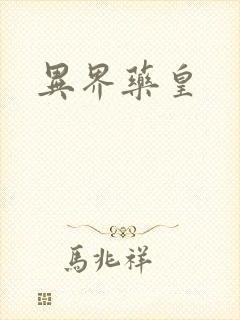 異界藥皇
馬兆祥